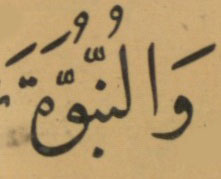 وَالنُّبُوَّةَ